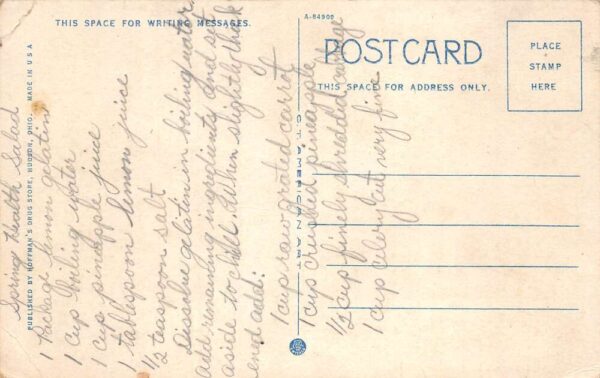 THIS SPACE FOR WRITING MESSAGES.
A-84909
POST CARD
THIS SPACE FOR ADDRESS ONLY.
PLACE
STAMP
HERE
PUBLISHED BY HOFFMAN'S DRUG STORE, HUDSON, OHIO. MADE IN U S A
Spring Health Salad
1 Package lemon gelatin
1 cup boiling water
1 cup pineapple juice
1 tablespoon lemon juice
1/2 teaspoon salt
Dissolve gelatin in boiling water
add remaining ingredients and set
aside to chill. When slightly thick
ened add:
1 cup raw grated carrot
1 cup crushed pineapple
1/2 cup finely shredded cabbage
1 cup celery cut very fine